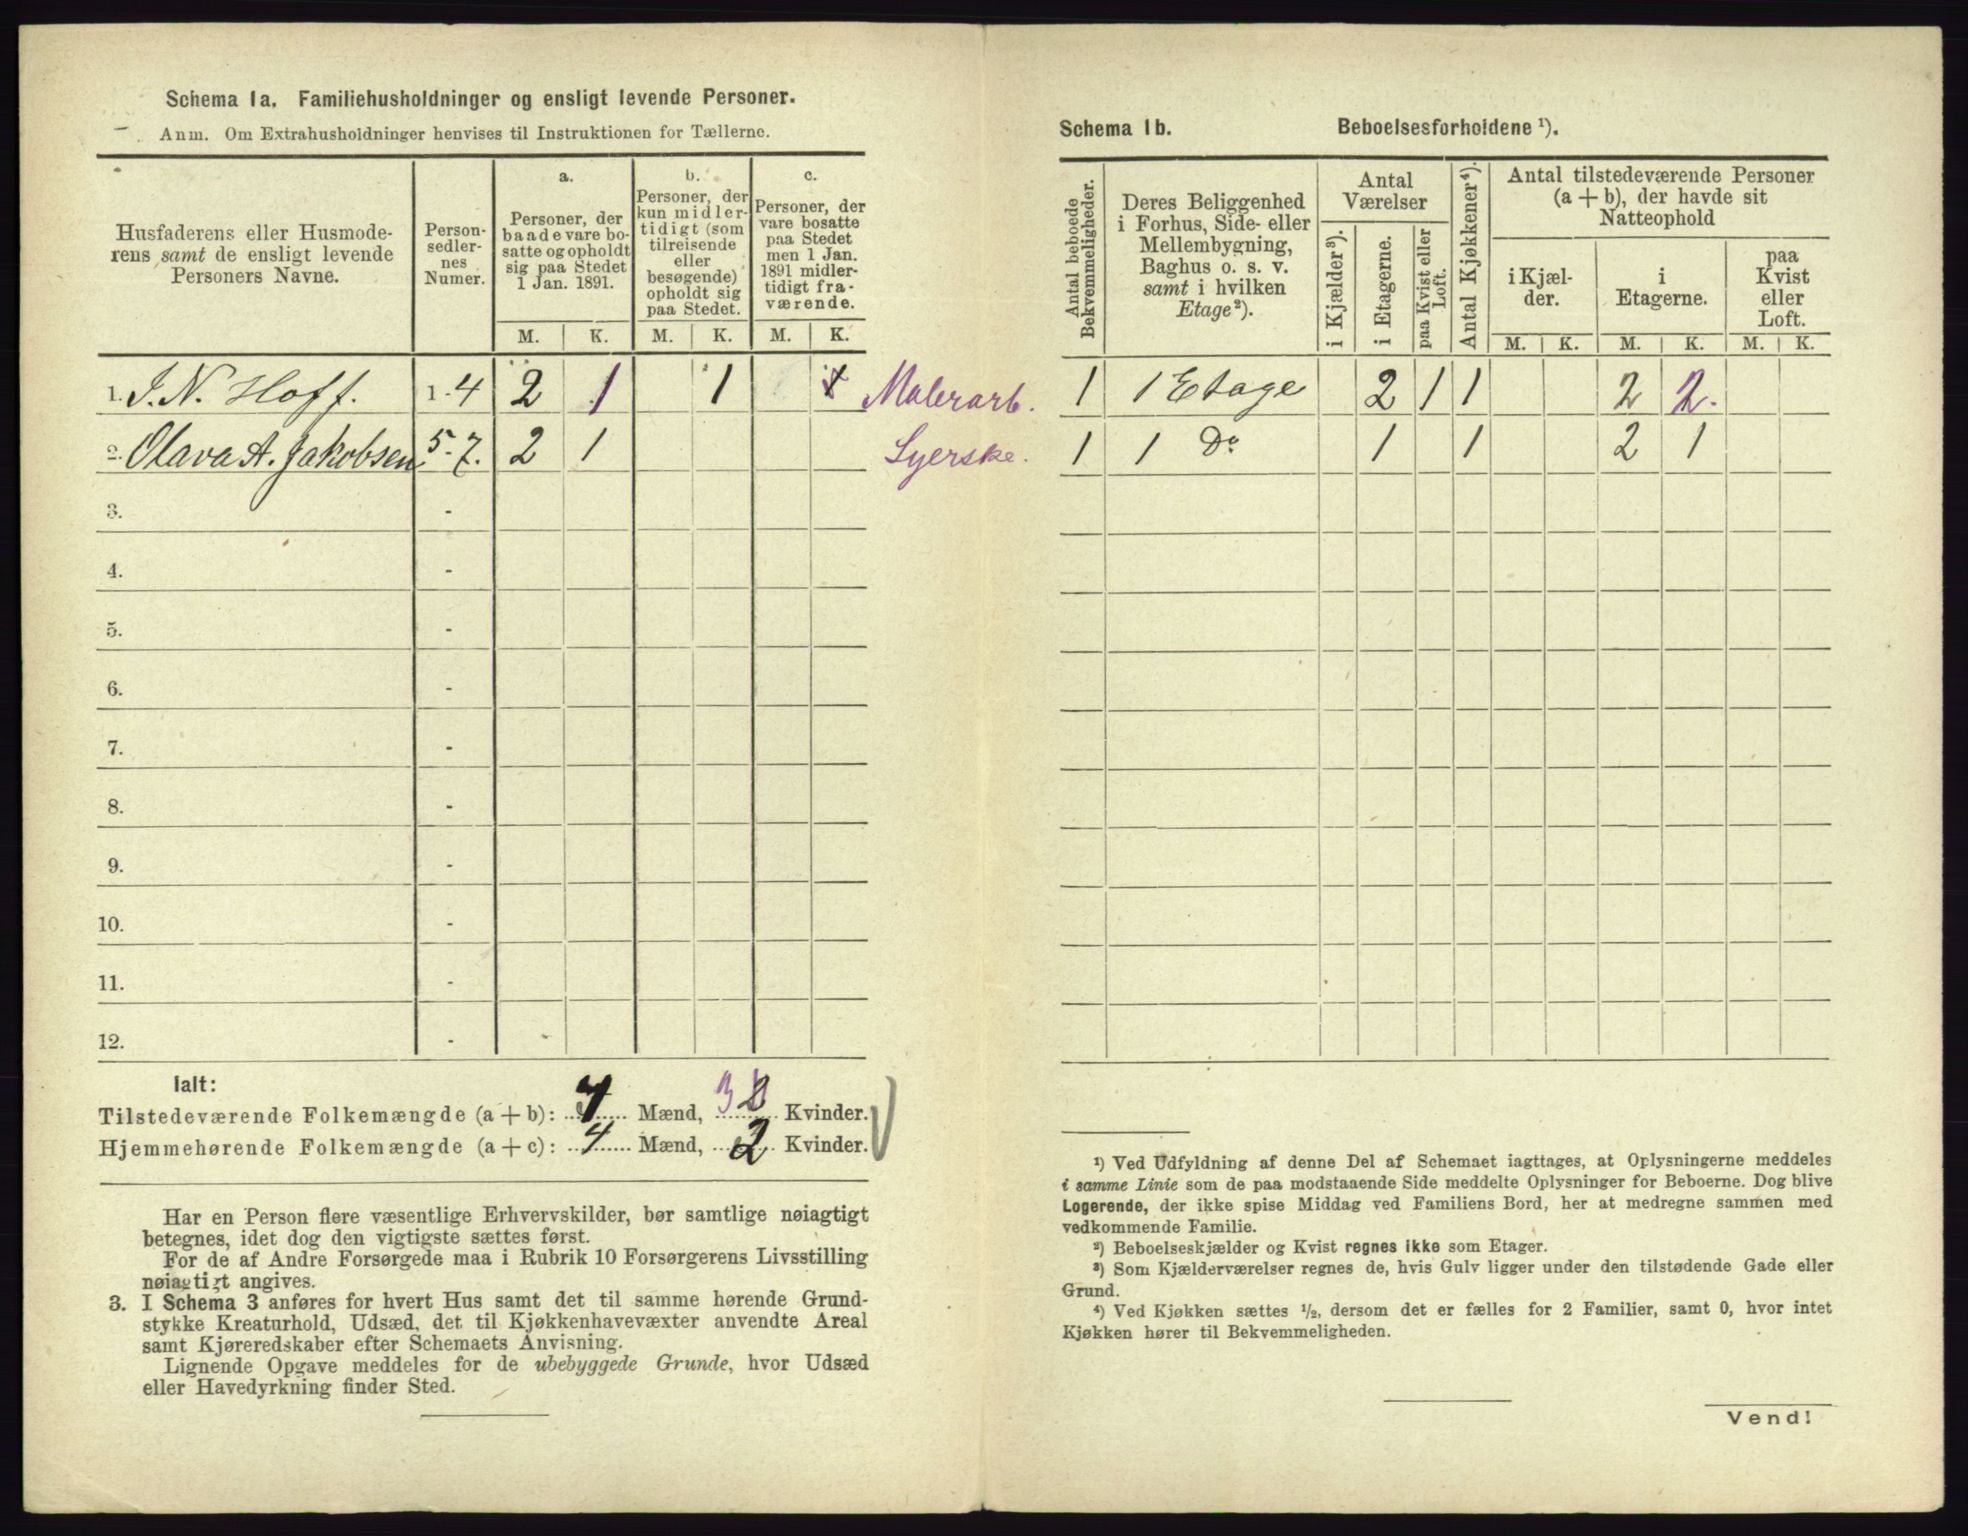 Schema 1a. Familiehusholdninger og ensligt levende Personer.
Anm. Om Extrahusholdninger henvises til Instruktionen for Tællerne.
Husfaderens eller Husmode-
rens samt de ensligt levende
Personers Navne.
Person-
sedler-
nes
Numer.
a.
Personer, der
baade vare bo-
satte og opholdt
sig paa Stedet
1 Jan. 1891.
b.
Personer, der
kun midler-
tidigt (som
tilreisende
eller
besøgende)
opholdt sig
paa Stedet.
c.
Personer, der
vare bosatte
paa Stedet
men 1 Jan.
1891 midler-
tidigt fra-
værende.
M. K. M. K. M. K.
1. J. N. Hoff. 1-4 2 1 1 Malerarb.
2. Olava A. Jakobsen 5-7. 2 1 Syerske.
3. -
4. -
5. -
6. -
7. -
8. -
9. -
10. -
11. -
12. -
Ialt:
Tilstedeværende Folkemængde (a + b): 4 Mænd, 3 Kvinder.
Hjemmehørende Folkemængde (a + c): 4 Mænd, 2 Kvinder.
Har en Person flere væsentlige Erhvervskilder, bør samtlige nøiagtigt
betegnes, idet dog den vigtigste sættes først.
For de af Andre Forsørgede maa i Rubrik 10 Forsørgerens Livsstilling
nøiagtigt angives.
3. I Schema 3 anføres for hvert Hus samt det til samme hørende Grund-
stykke Kreaturhold, Udsæd, det til Kjøkkenhavevæxter anvendte Areal
samt Kjøreredskaber efter Schemaets Anvisning.
Lignende Opgave meddeles for de ubebyggede Grunde, hvor Udsæd
eller Havedyrkning finder Sted.
Schema 1b. Beboelsesforholdene ¹).
Antal beboede
Bekvemmeligheder.
Deres Beliggenhed
i Forhus, Side- eller
Mellembygning,
Baghus o. s. v.
samt i hvilken
Etage²).
Antal
Værelser
i Kjælder³).
i Etagerne.
paa Kvist eller
Loft.
Antal Kjøkkener⁴).
Antal tilstedeværende Personer
(a + b), der havde sit
Natteophold
i Kjæl-
der.
i
Etagerne.
paa
Kvist
eller
Loft.
M. K. M. K. M. K.
1 1 Etage 2 1 1 2 2.
1 1 Do 1 1 2 1
¹) Ved Udfyldning af denne Del af Schemaet iagttages, at Oplysningerne meddeles
i samme Linie som de paa modstaaende Side meddelte Oplysninger for Beboerne. Dog blive
Logerende, der ikke spise Middag ved Familiens Bord, her at medregne sammen med
vedkommende Familie.
²) Beboelseskjælder og Kvist regnes ikke som Etager.
³) Som Kjælderværelser regnes de, hvis Gulv ligger under den tilstødende Gade eller
Grund.
⁴) Ved Kjøkken sættes ¹/₂, dersom det er fælles for 2 Familier, samt 0, hvor intet
Kjøkken hører til Bekvemmeligheden.
Vend!